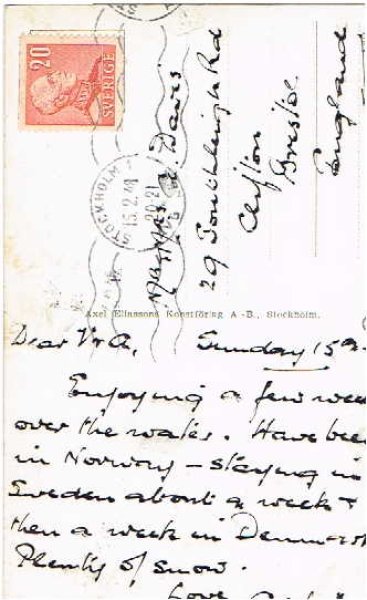 20
SVERIGE
STOCKHOLM
15.2.48
20-21
Davis
29 Southleigh Rd
Clifton
Bristol
England
Axel Eliassons Konstförlag A.-B., Stockholm.
Dear V & A, Sunday 15th
Enjoying a few wee
over the water. Have bee
in Norway - staying in
Sweden about a week &
then a week in Denmark
Plenty of snow.
Love